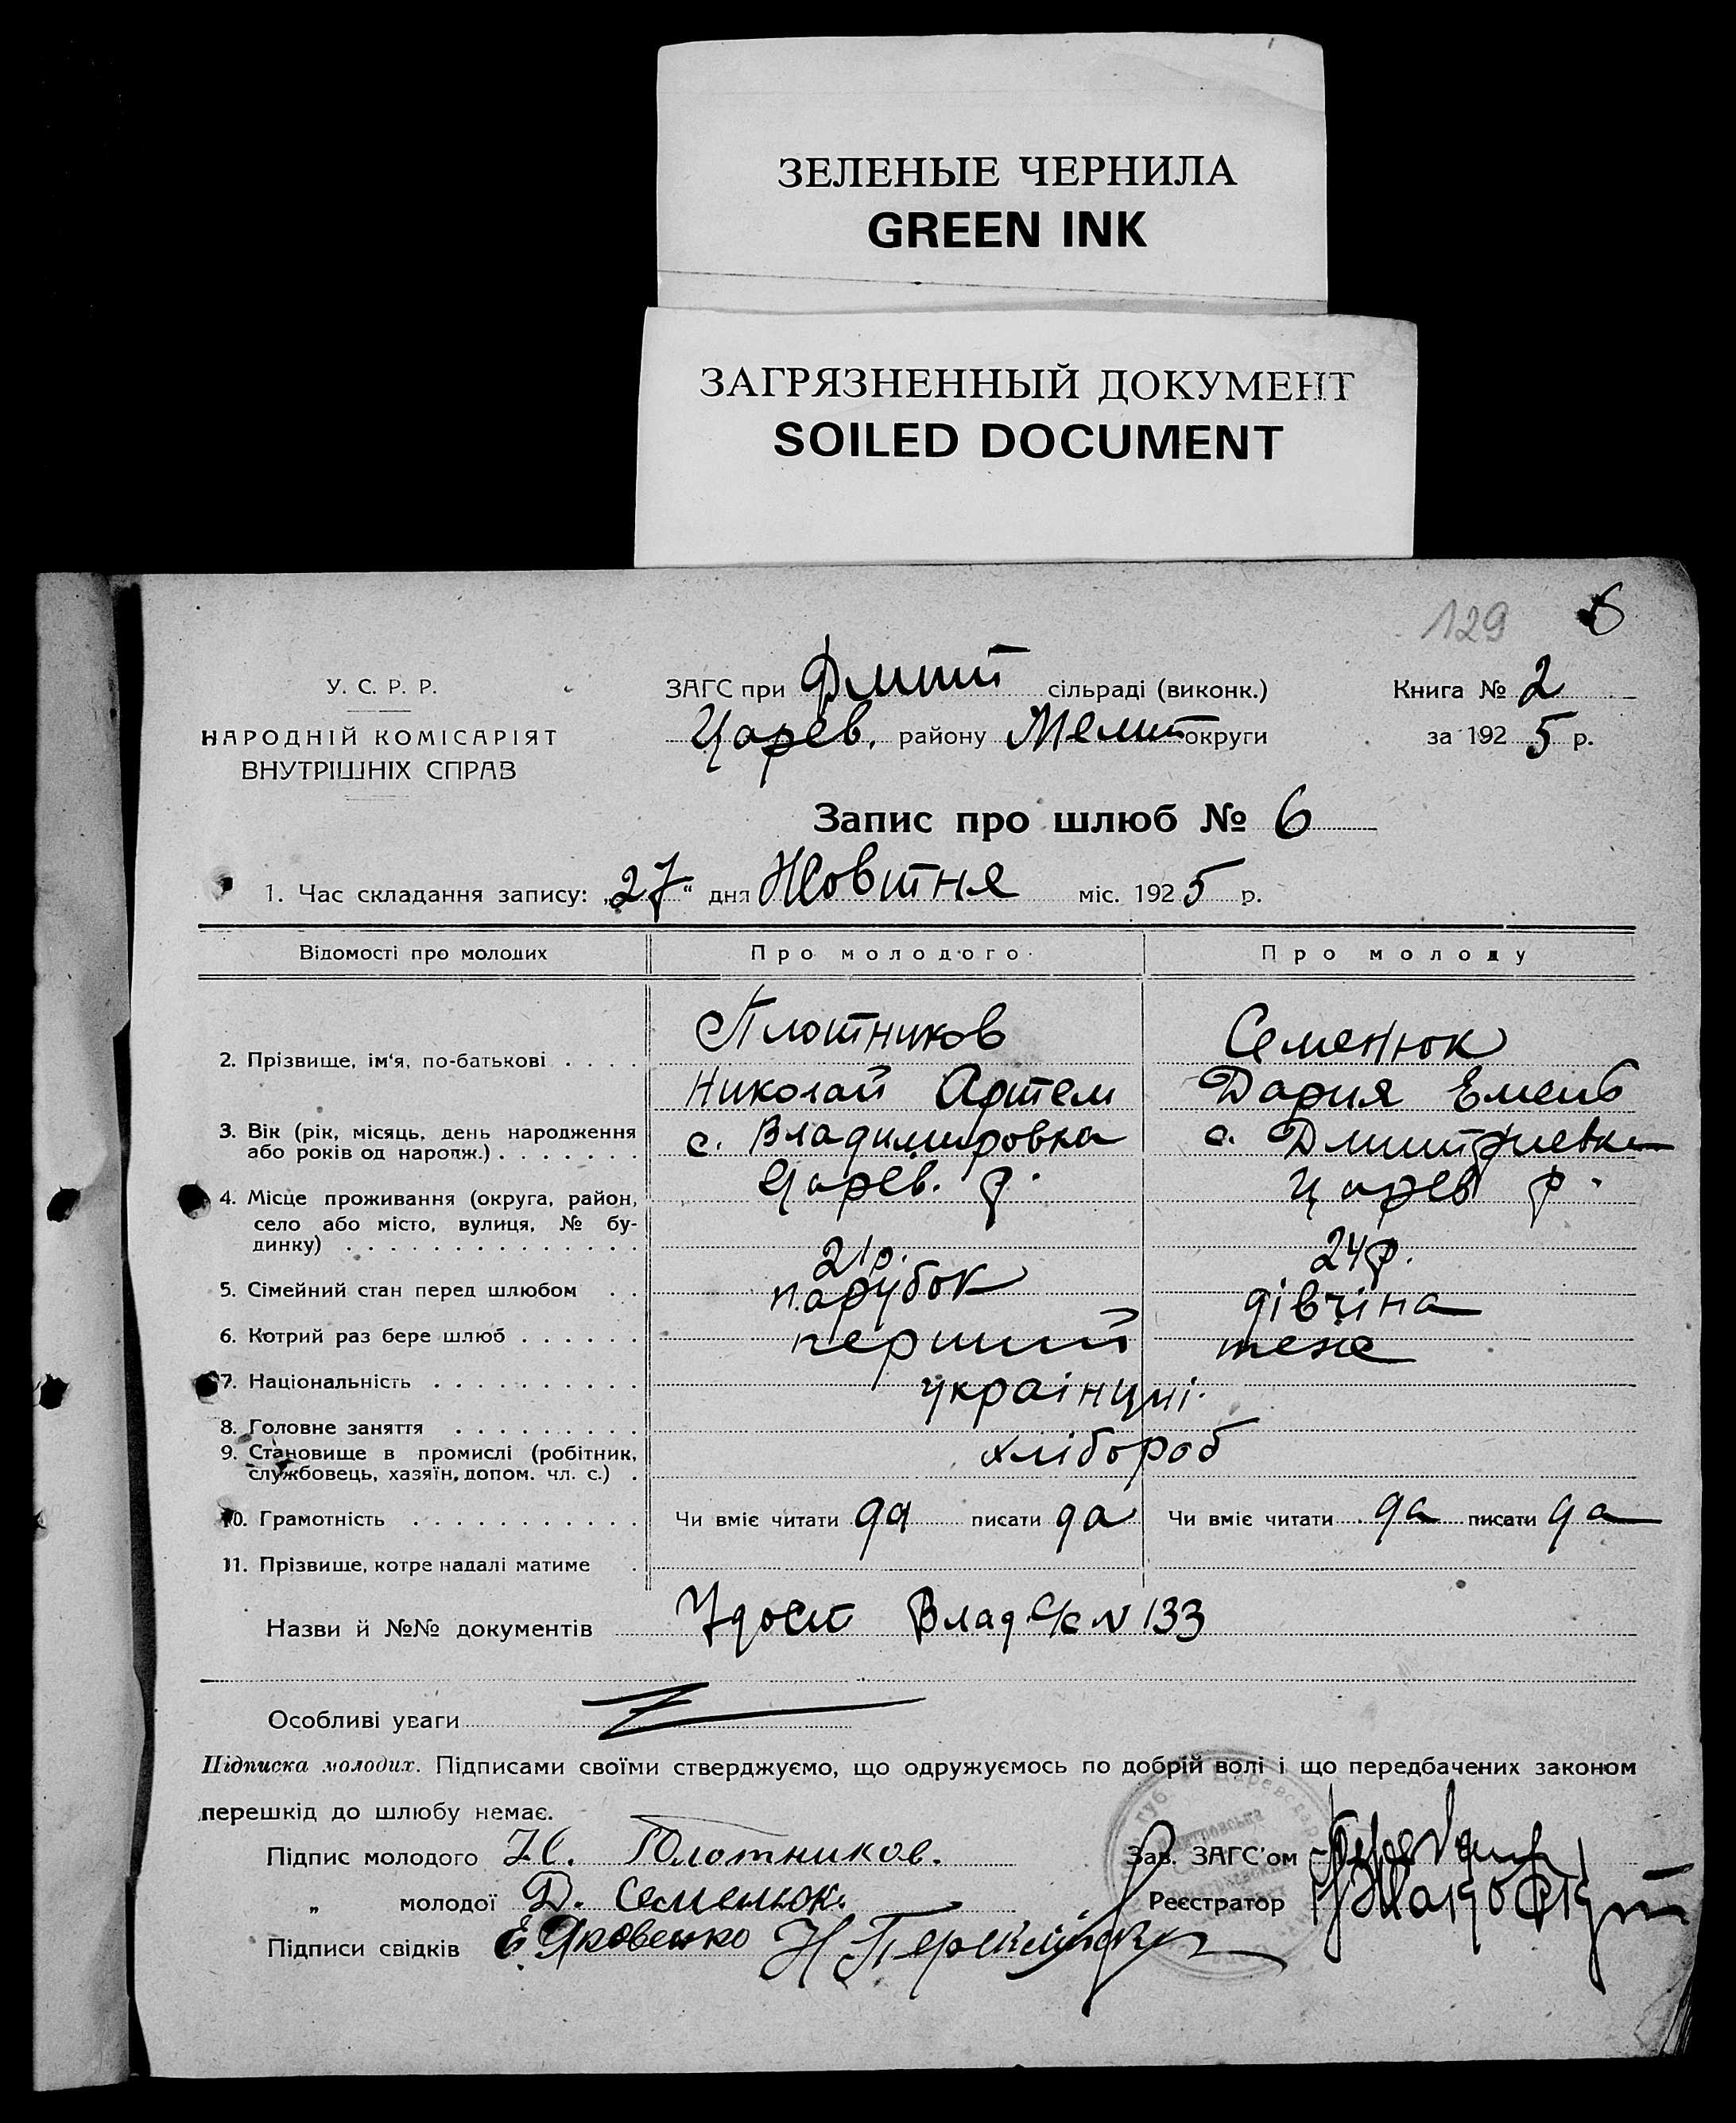 ЗЕЛЕНЫЕ ЧЕРНИЛА
GREEN INK
ЗАГРЯЗНЕННЫЙ ДОКУМЕНТ
SOILED DOCUMENT
129 6
У. С. Р. Р.
НАРОДНІЙ КОМІСАРІЯТ
ВНУТРІШНІХ СПРАВ
ЗАГС при Дмит сільраді (виконк.)
Царев. району Мелит округи
Книга № 2
за 1925 р.
Запис про шлюб № 6
1. Час складання запису: „27“ дня Жовтня міс. 1925 р.
Відомості про молодих Про молодого Про молоду
2. Прізвище, ім‘я, по-батькові . . . . Плотников Семенюк
Николай Артем Дария Емель
3. Вік (рік, місяць, день народження або років од народж.) . . . . . . . с. Владимировка с. Дмитриевка
Царев. р. Царев р.
4. Місце проживання (округа, район, село або місто, вулиця, № будинку) . . . . . . . . . . . . . . 21р. 24р.
5. Сімейний стан перед шлюбом . . парубок дівчіна
6. Котрий раз бере шлюб . . . . . . перший теже
7. Національність . . . . . . . . . . українці.
8. Головне заняття . . . . . . . . .
9. Становище в промислі (робітник, службовець, хазяїн, допом. чл. с.) . хлібороб
10. Грамотність . . . . . . . . . . . Чи вміє читати да писати да Чи вміє читати да писати да
11. Прізвище, котре надалі матиме .
Назви й №№ документів Удост Влад С/с N 133
Особливі уваги
Підписка молодих. Підписами своїми стверджуємо, що одружуємось по добрій волі і що передбачених законом
перешкід до шлюбу немає.
Підпис молодого Н. Плотников. Зав. ЗАГС'ом
„ молодої Д. Семенюк. Реєстратор
Підписи свідків Е Яковенко Н